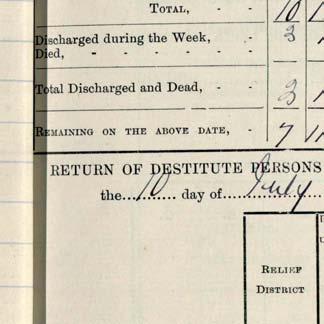 TOTAL, - - 10 1
Discharged during the Week, - 3
Died, - - - - -
Total Discharged and Dead, - - 3 1
REMAINING ON THE ABOVE DATE, - 7 11
RETURN OF DESTITUTE PERSONS
the 10 day of July
RELIEF
DISTRICT